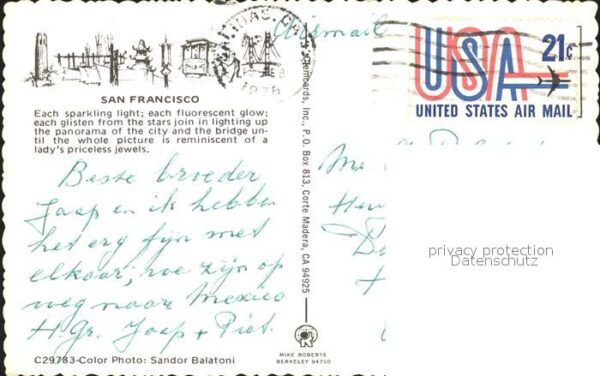 Airmail
USA 21c
UNITED STATES AIR MAIL
SAN FRANCISCO
Each sparkling light; each fluorescent glow;
each glisten from the stars join in lighting up
the panorama of the city and the bridge un-
til the whole picture is reminiscent of a
lady's priceless jewels.
Beste broeder
Jaap en ik hebben
het erg fijn met
elkaar, we zijn op
weg naar Mexico
H.Gr. Jaap + Piet.
C29783-Color Photo: Sandor Balatoni
Inc., P.O. Box 813, Corte Madera, CA 94925
MIKE ROBERTS
BERKELEY 94710
privacy protection
Datenschutz